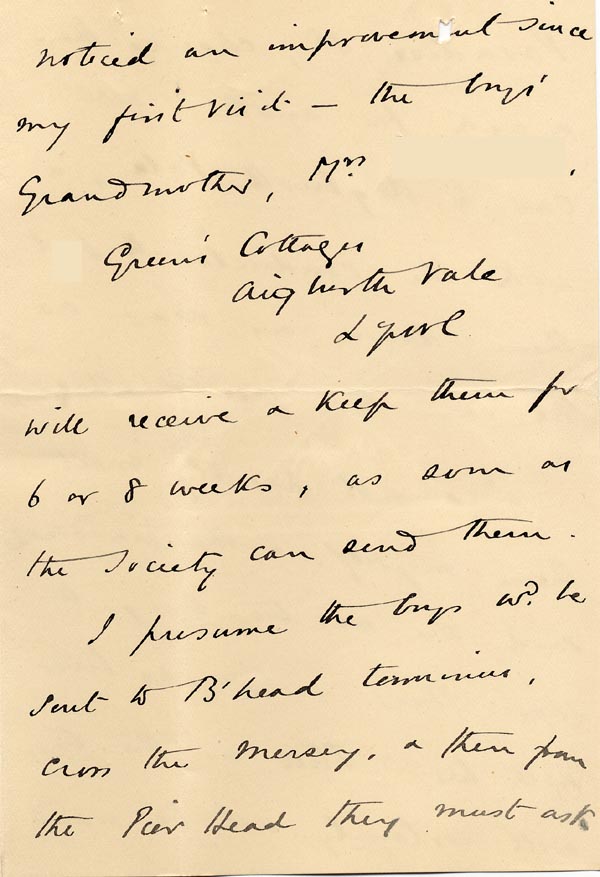 noticed an improvement since
my first visit – the boys'
Grandmother, Mrs ,
Green's Cottages
Aigburth Vale
L'pool
will receive & keep them for
6 or 8 weeks, as soon as
the Society can send them.
I presume the boys wd. be
sent to B'head terminus,
cross the Mersey, & then from
the Pier Head they must ask